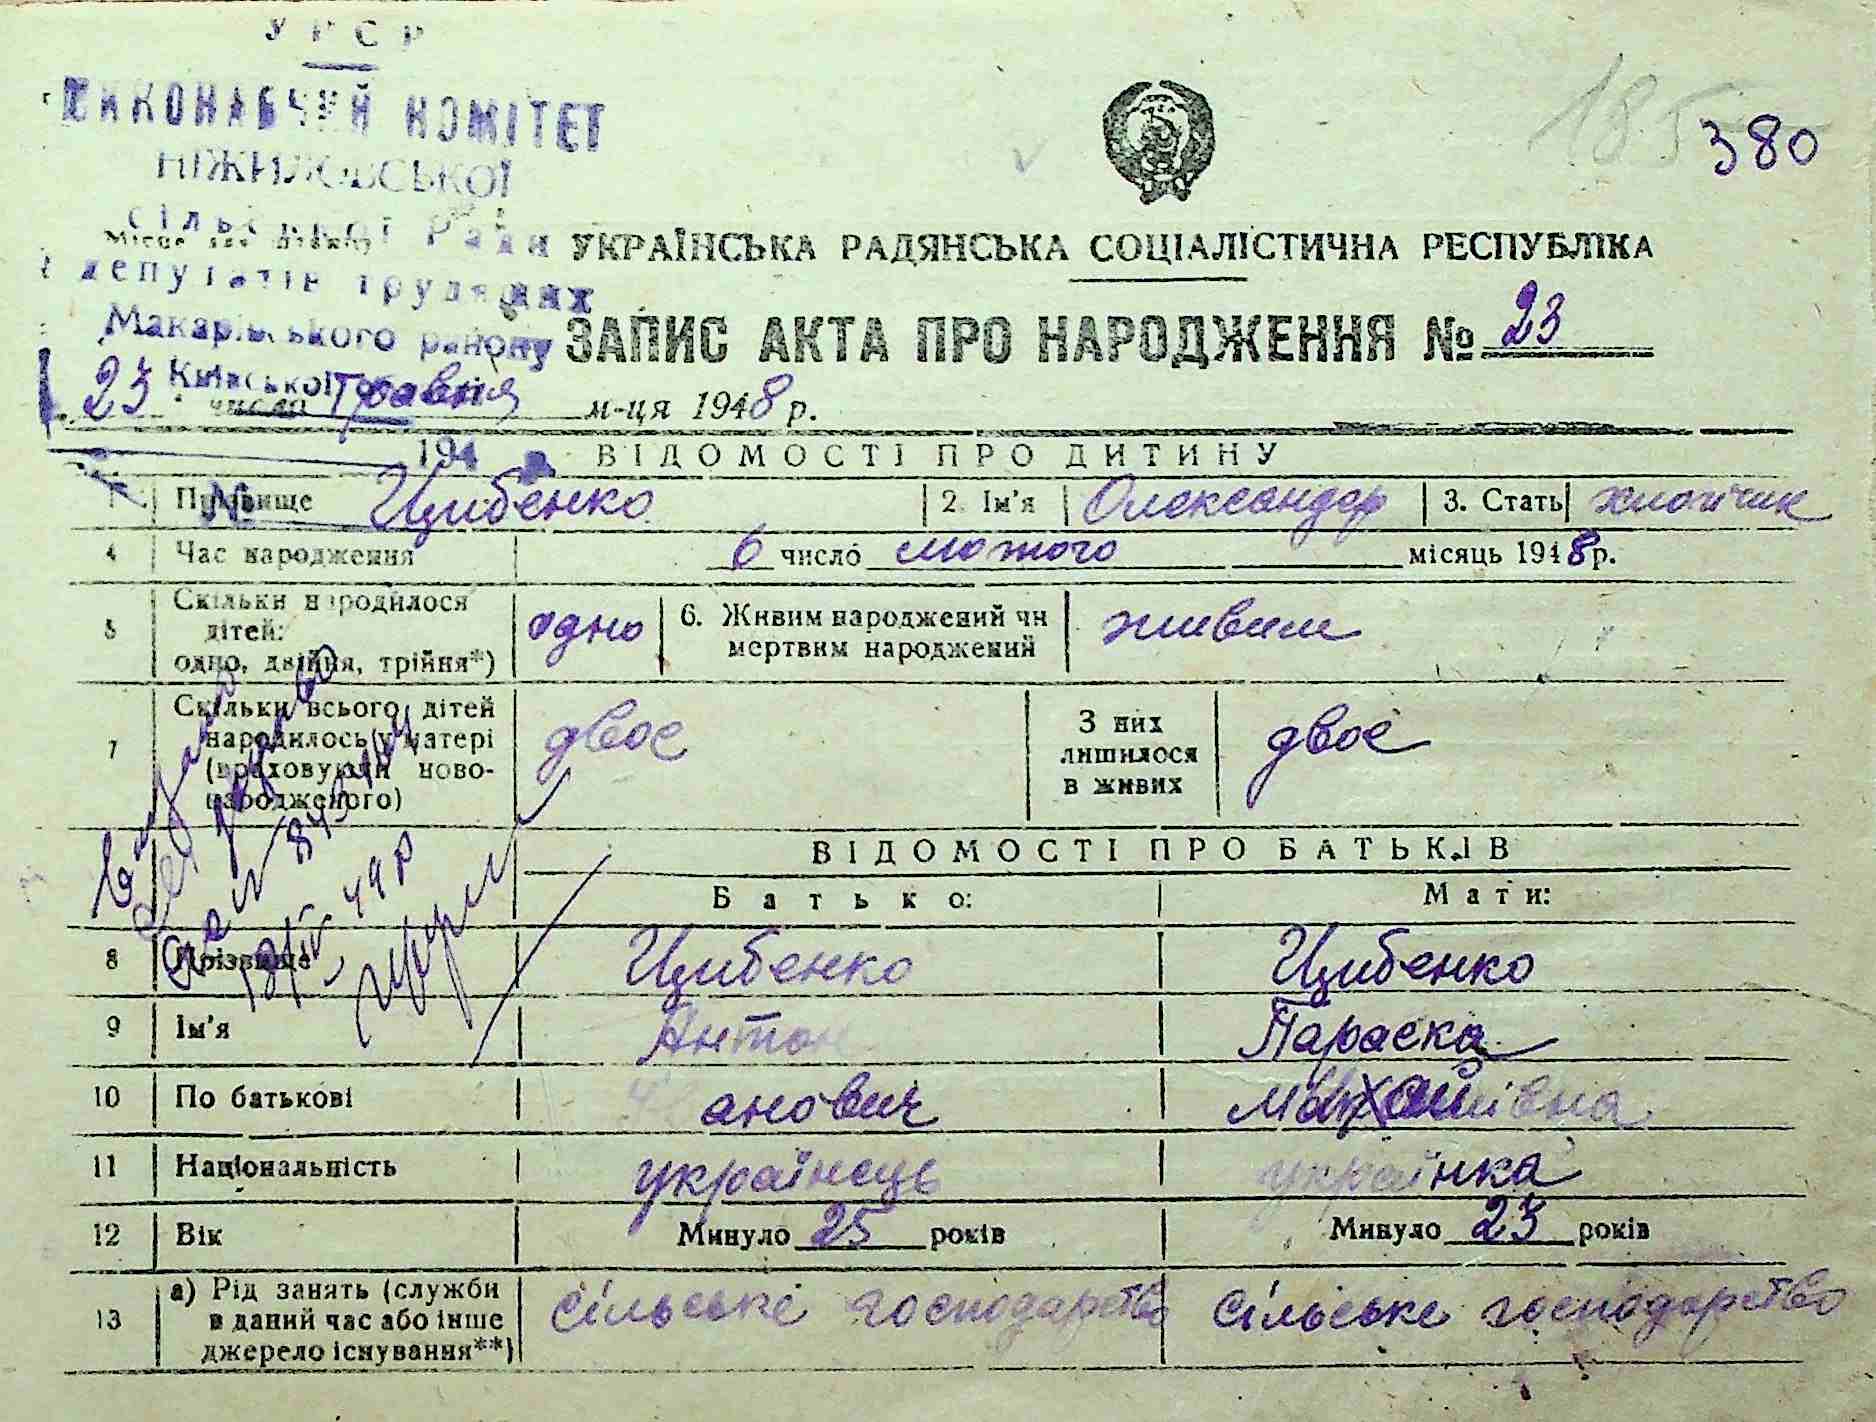 У Р С Р
ВИКОНАВЧИЙ КОМІТЕТ
НІЖИЛОВСЬКОЇ
сільської Ради
депутатів трудящих
Макарівського району
Київської
194
№
185
380
УКРАЇНСЬКА РАДЯНСЬКА СОЦІАЛІСТИЧНА РЕСПУБЛІКА
ЗАПИС АКТА ПРО НАРОДЖЕННЯ № 23
23 число травня м-ця 1948 р.
ВІДОМОСТІ ПРО ДИТИНУ
1 Прізвище Цибенко 2. Ім'я Олександер 3. Стать хлопчик
4 Час народження 6 число лютого місяць 1948 р.
5 Скільки народилося дітей: одно, двійня, трійня*) одно 6. Живим народжений чи мертвим народжений живим
7 Скільки всього дітей народилось у матері (враховуючи новонародженого) двоє З них лишилося в живих двоє
ВІДОМОСТІ ПРО БАТЬКІВ
Батько: Мати:
8 Прізвище Цибенко Цибенко
9 Ім'я Антон Параска
10 По батькові анович
11 Національність українець українка
12 Вік Минуло 25 років Минуло 23 років
13 а) Рід занять (служби в даний час або інше джерело існування**) сільське господарство сільське господарство